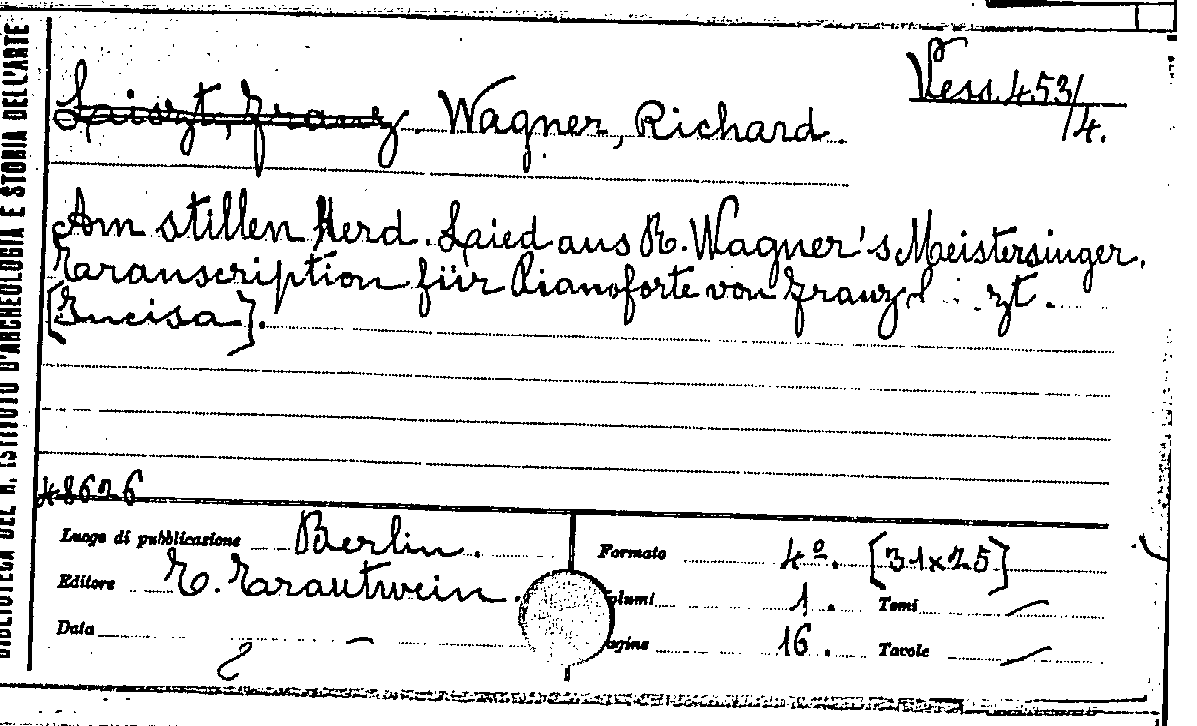 BIBLIOTECA DEL R. ISTITUTO D'ARCHEOLOGIA E STORIA DELL'ARTE
Vess. 453/4.
Liszt, Franz. Wagner, Richard.
Am stillen Herd. Lied aus R. Wagner's Meistersinger.
Transcription für Pianoforte von Franz L zt.
[Incisa].
48626
Luogo di pubblicazione Berlin.
Editore T. Trautwein.
Data —
Formato 4º. [31x25]
Volumi 1. Tomi /
Pagine 16. Tavole /